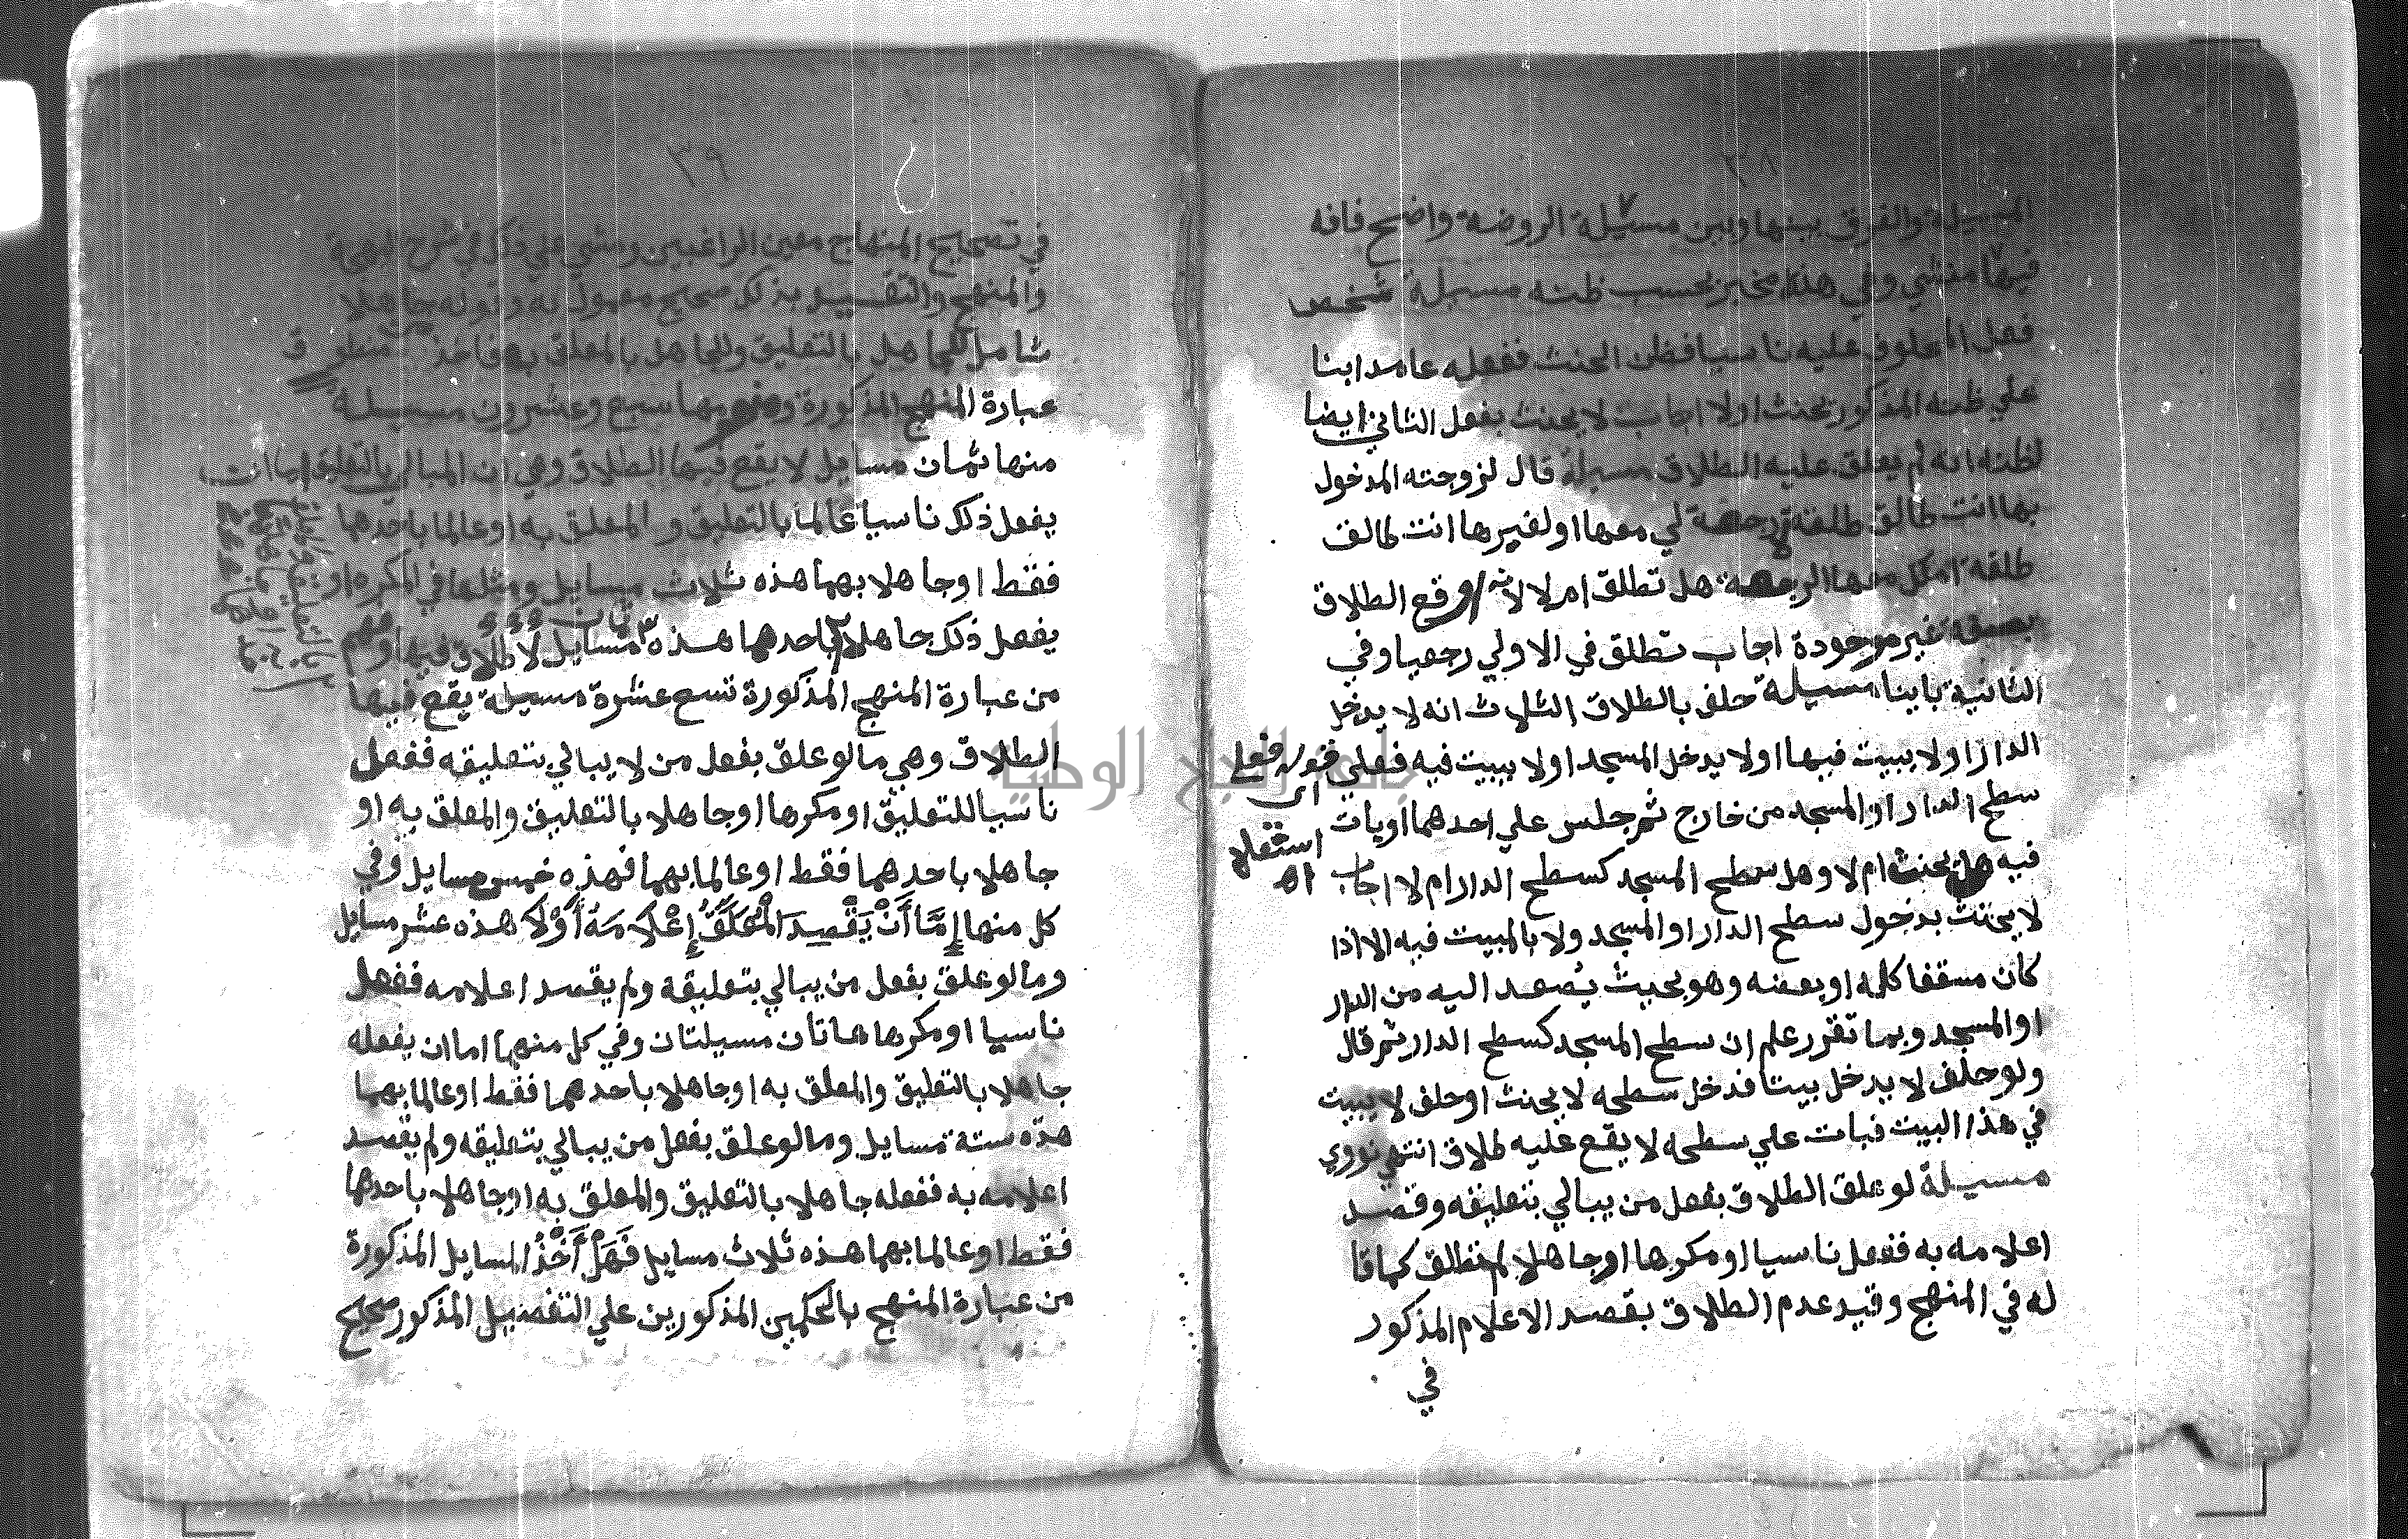 ٣٨
المسيلة والفرق بينها وبين مسيلة الروضة واضح فافه
فيها منشي وفي هذه مخبر بحسب ظنه مسيلة شخص
فعل المحلوف عليه ناسيا فظن الحنث ففعله عامدا بنا
علي ظنه المذكور يحنث اولا اجاب لا يحنث بفعل الثاني ايضا
لظنه انه لم يعلق عليه الطلاق مسيلة قال لزوجته المدخول
بها انت طالق طلقة رجعة لي معها او لغيرها انت طالق
طلقة املكي منها الرجعة هل تطلق ام لا لانه اوقع الطلاق
بصفة غير موجودة اجاب تطلق في الاولي رجعيا وفي
الثانية باينا مسيلة حلف بالطلاق الثلاث انه لا يدخل
الدار او لا يبيت فيها او لا يدخل المسجد او لا يبيت فيه فعلي
سطح الدار او المسجد من خارج ثم جلس علي احدهما او بات
فيه هل يحنث ام لا وهل سطح المسجد كسطح الدار ام لا اجاب
لا يحنث بدخول سطح الدار او المسجد ولا بالمبيت فيه الا اذا
كان مسقفا كله او بعضه وهو بحيث يصعد اليه من الدار
او المسجد وبما تقرر علم ان سطح المسجد كسطح الدار ثم قال
ولو حلف لا يدخل بيتا فدخل سطحه لا يحنث او حلف لا يبيت
في هذا البيت فبات علي سطحه لا يقع عليه طلاق انتهي نووي
مسيلة لو علق الطلاق بفعل من يبالي بتعليقه وقصد
اعلامه به ففعل ناسيا او مكرها او جاهلا لم تطلق كما قا
له في المنهج وقيد عدم الطلاق بقصد الاعلام المذكور
في
قوله فعلي
اي
استقلا
اه
٣٩
في تصحيح المنهاج معين الراغبين ومشي علي ذلك في شرح البهجة
والمنهج والتقييد بذلك صحيح معمول به وقوله جاهلا
شامل للجاهل بالتعليق وللجاهل بالمعلق به فاخذ منطوق
عبارة المنهج المذكورة ومفهومها سبع وعشرون مسيلة
منها ثمان مسايل لا يقع فيها الطلاق وهي ان المبالي بالتعليق اما ان
يفعل ذلك ناسيا عالما بالتعليق والمعلق به او عالما باحدهما
فقط او جاهلا بهما هذه ثلاث مسايل ومثلها في المكره او
يفعل ذلك جاهلا باحدهما هذه ثمان مسايل لا طلاق فيها وفهم
من عبارة المنهج المذكورة تسع عشرة مسيلة يقع فيها
الطلاق وهي ما لو علق بفعل من لا يبالي بتعليقه ففعل
ناسيا للتعليق او مكرها او جاهلا بالتعليق والمعلق به او
جاهلا باحدهما فقط او عالما بهما فهذه خمس مسايل وفي
كل منها إِمَّا أَنْ يَقْصِدَ الْمُعَلِّقُ إِعْلَامَهُ أَوْلَا هذه عشر مسايل
وما لو علق بفعل من يبالي بتعليقه ولم يقصد اعلامه ففعل
ناسيا او مكرها هاتان مسيلتان وفي كل منهما اما ان يفعله
جاهلا بالتعليق والمعلق به او جاهلا باحدهما فقط او عالما بهما
هذه ستة مسايل وما لو علق بفعل من يبالي بتعليقه ولم يقصد
اعلامه به ففعله جاهلا بالتعليق والمعلق به او جاهلا باحدهما
فقط او عالما بهما هذه ثلاث مسايل فَهَلْ أَخْذُ المسايل المذكورة
من عبارة المنهج بالحكمين المذكورين علي التفصيل المذكور صحيح
جامعة النجاح الوطنية